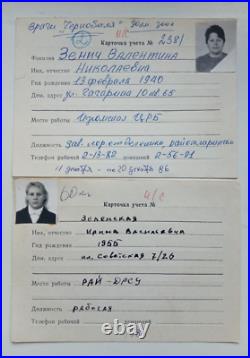 врачи "Чернобыля" 30км зона
ч/с
2
Карточка учета № 2381
Фамилия Зенич Валентина
Имя, отчество Николаевна
Год рождения 13 февраля 1940
Дом. адрес ул. Гагарина 10 кв. 65
Место работы ЦРБ
Должность зав.
Телефон рабочий 2-13-82 домашний 2-56-01
11 декабря - по 20 декабря 86
60 км
ч/с
Карточка учета №
Зеленская
Имя, отчество Ирина Васильевна
Год рождения 1955
Дом. адрес пл. Советская 7/26
Место работы РАЙ-ДРСУ
Должность рабочая
Телефон рабочий домашний